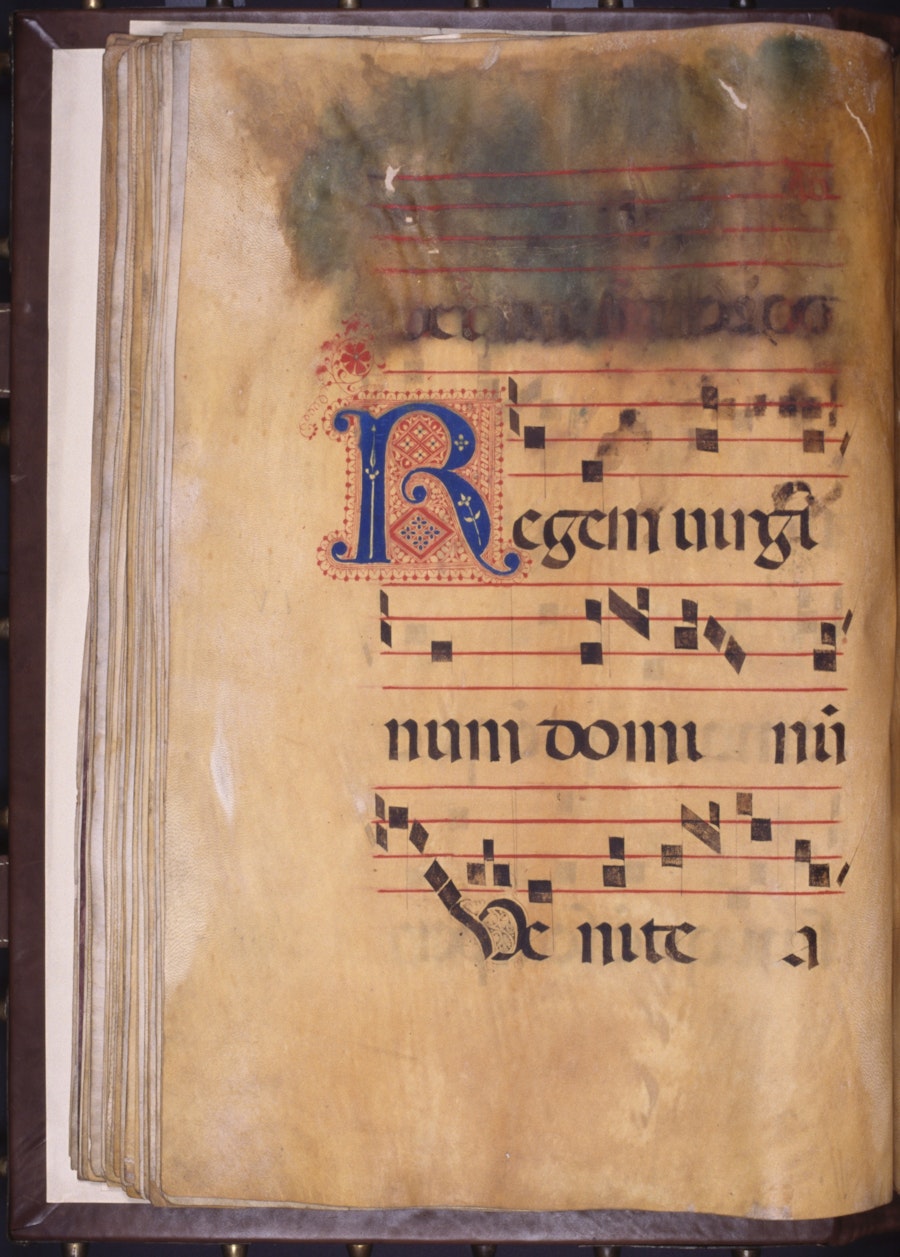 Regem uirgi
num domi nũ
Ve nite a